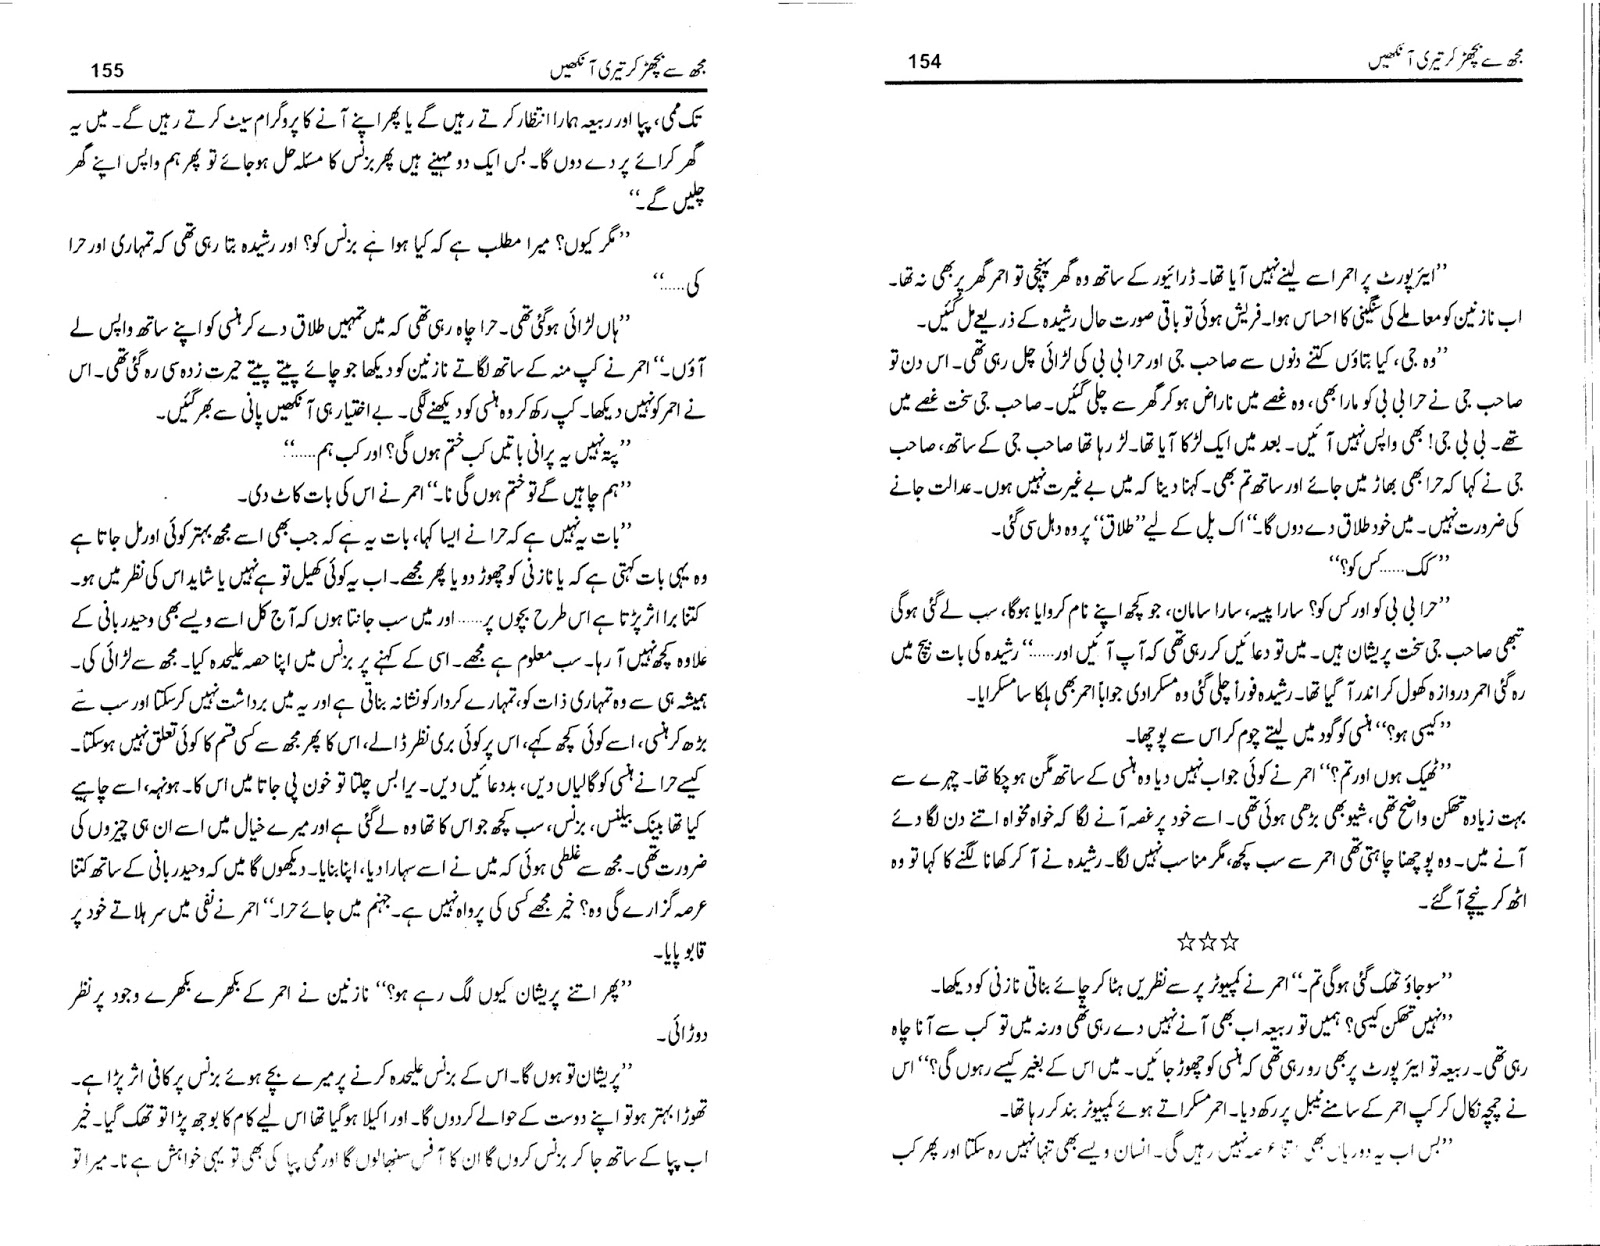 مجھ سے بچھڑ کر تیری آنکھیں 154
”ایئرپورٹ پر احمر اسے لینے نہیں آیا تھا۔ ڈرائیور کے ساتھ وہ گھر پہنچی تو احمر گھر پر بھی نہ تھا۔
اب نازنین کو معاملے کی سنگینی کا احساس ہوا۔ فریش ہوئی تو باقی صورت حال رشیدہ کے ذریعے مل گئیں۔
”وہ جی، کیا بتاؤں کتنے دنوں سے صاحب جی اور حرا بی بی کی لڑائی چل رہی تھی۔ اس دن تو
صاحب جی نے حرا بی بی کو مارا بھی، وہ غصے میں ناراض ہو کر گھر سے چلی گئیں۔ صاحب جی سخت غصے میں
تھے۔ بی بی جی! بھی واپس نہیں آئیں۔ بعد میں ایک لڑکا آیا تھا۔ لڑ رہا تھا صاحب جی کے ساتھ، صاحب
جی نے کہا کہ حرا بھی بھاڑ میں جائے اور ساتھ تم بھی۔ کہنا دینا کہ میں بے غیرت نہیں ہوں۔ عدالت جانے
کی ضرورت نہیں۔ میں خود طلاق دے دوں گا۔“ اک پل کے لیے ”طلاق“ پر وہ دہل سی گئی۔
”کک......کس کو؟“
”حرا بی بی کو اور کس کو؟ سارا پیسہ، سارا سامان، جو کچھ اپنے نام کروایا ہوگا، سب لے گئی ہوگی
تبھی صاحب جی سخت پریشان ہیں۔ میں تو دعائیں کر رہی تھی کہ آپ آئیں اور......“ رشیدہ کی بات بیچ میں
رہ گئی احمر دروازہ کھول کر اندر آ گیا تھا۔ رشیدہ فوراً چلی گئی وہ مسکرا دی جواباً احمر بھی ہلکا سا مسکرایا۔
”کیسی ہو؟“ ہنسی کو گود میں لیتے چوم کر اس سے پوچھا۔
”ٹھیک ہوں اور تم؟“ احمر نے کوئی جواب نہیں دیا وہ ہنسی کے ساتھ مگن ہو چکا تھا۔ چہرے سے
بہت زیادہ تھکن واضح تھی، شیو بھی بڑھی ہوئی تھی۔ اسے خود پر غصہ آنے لگا کہ خواہ مخواہ اتنے دن لگا دئے
آنے میں۔ وہ پوچھنا چاہتی تھی احمر سے سب کچھ، مگر مناسب نہیں لگا۔ رشیدہ نے آ کر کھانا لگنے کا کہا تو وہ
اٹھ کر نیچے آ گئے۔
☆☆☆
”سو جاؤ تھک گئی ہوگی تم۔“ احمر نے کمپیوٹر پر سے نظریں ہٹا کر چائے بناتی نازنی کو دیکھا۔
”نہیں تھکن کیسی؟ ہمیں تو ربیعہ اب بھی آنے نہیں دے رہی تھی ورنہ میں تو کب سے آنا چاہ
رہی تھی۔ ربیعہ تو ایئرپورٹ پر بھی رو رہی تھی کہ ہنسی کو چھوڑ جائیں۔ میں اس کے بغیر کیسے رہوں گی؟“ اس
نے چمچہ نکال کر کپ احمر کے سامنے ٹیبل پر رکھ دیا۔ احمر مسکراتے ہوئے کمپیوٹر بند کر رہا تھا۔
”بس اب یہ دوریاں بھی نہیں رہیں گی۔ انسان ویسے بھی تنہا نہیں رہ سکتا اور پھر کب
مجھ سے بچھڑ کر تیری آنکھیں 155
تک ممی، پپا اور ربیعہ ہمارا انتظار کرتے رہیں گے یا پھر اپنے آنے کا پروگرام سیٹ کرتے رہیں گے۔ میں یہ
گھر کرائے پر دے دوں گا۔ بس ایک دو مہینے ہیں پھر بزنس کا مسئلہ حل ہو جائے تو پھر ہم واپس اپنے گھر
چلیں گے۔“
”مگر کیوں؟ میرا مطلب ہے کہ کیا ہوا ہے بزنس کو؟ اور رشیدہ بتا رہی تھی کہ تمہاری اور حرا
کی......“
”ہاں لڑائی ہو گئی تھی۔ حرا چاہ رہی تھی کہ میں تمہیں طلاق دے کر ہنسی کو اپنے ساتھ واپس لے
آؤں۔“ احمر نے کپ منہ کے ساتھ لگاتے نازنین کو دیکھا جو چائے پیتے پیتے حیرت زدہ سی رہ گئی تھی۔ اس
نے احمر کو نہیں دیکھا۔ کپ رکھ کر وہ ہنسی کو دیکھنے لگی۔ بے اختیار ہی آنکھیں پانی سے بھر گئیں۔
”پتہ نہیں یہ پرانی باتیں کب ختم ہوں گی؟ اور کب ہم......“
”ہم چاہیں گے تو ختم ہوں گی نا۔“ احمر نے اس کی بات کاٹ دی۔
”بات یہ نہیں ہے کہ حرا نے ایسا کہا، بات یہ ہے کہ جب بھی اسے مجھ بہتر کوئی اور مل جاتا ہے
وہ یہی بات کہتی ہے کہ یا نازنی کو چھوڑ دو یا پھر مجھے۔ اب یہ کوئی کھیل تو ہے نہیں یا شاید اس کی نظر میں ہو۔
کتنا برا اثر پڑتا ہے اس طرح بچوں پر...... اور میں سب جانتا ہوں کہ آج کل اسے ویسے بھی وحید ربانی کے
علاوہ کچھ نہیں آ رہا۔ سب معلوم ہے مجھے۔ اسی کے کہنے پر بزنس میں اپنا حصہ علیحدہ کیا۔ مجھ سے لڑائی کی۔
ہمیشہ ہی سے وہ تمہاری ذات کو، تمہارے کردار کو نشانہ بناتی ہے اور یہ میں برداشت نہیں کر سکتا اور سب سے
بڑھ کر ہنسی، اسے کوئی کچھ کہے، اس پر کوئی بری نظر ڈالے، اس کا پھر مجھ سے کسی قسم کا کوئی تعلق نہیں ہو سکتا۔
کیسے حرا نے ہنسی کو گالیاں دیں، بددعائیں دیں۔ یرا بس چلتا تو خون پی جاتا میں اس کا۔ ہونہہ، اسے چاہیے
کیا تھا بینک بیلنس، بزنس، سب کچھ جو اس کا تھا وہ لے گئی ہے اور میرے خیال میں اسے ان ہی چیزوں کی
ضرورت تھی۔ مجھ سے غلطی ہوئی کہ میں نے اسے سہارا دیا، اپنا بنایا۔ دیکھوں گا میں کہ وحید ربانی کے ساتھ کتنا
عرصہ گزارے گی وہ؟ خیر مجھے کسی کی پرواہ نہیں ہے۔ جہنم میں جائے حرا۔“ احمر نے نفی میں سر ہلاتے خود پر
قابو پایا۔
”پھر اتنے پریشان کیوں لگ رہے ہو؟“ نازنین نے احمر کے بکھرے بکھرے وجود پر نظر
دوڑائی۔
”پریشان تو ہوں گا۔ اس کے بزنس علیحدہ کرنے پر میرے بچے ہوئے بزنس پر کافی اثر پڑا ہے۔
تھوڑا بہتر ہو تو اپنے دوست کے حوالے کر دوں گا۔ اور اکیلا ہو گیا تھا اس لیے کام کا بوجھ پڑا تو تھک گیا۔ خیر
اب پپا کے ساتھ جا کر بزنس کروں گا ان کا آفس سنبھالوں گا اور ممی پپا کی بھی تو یہی خواہش ہے نا۔ میرا تو